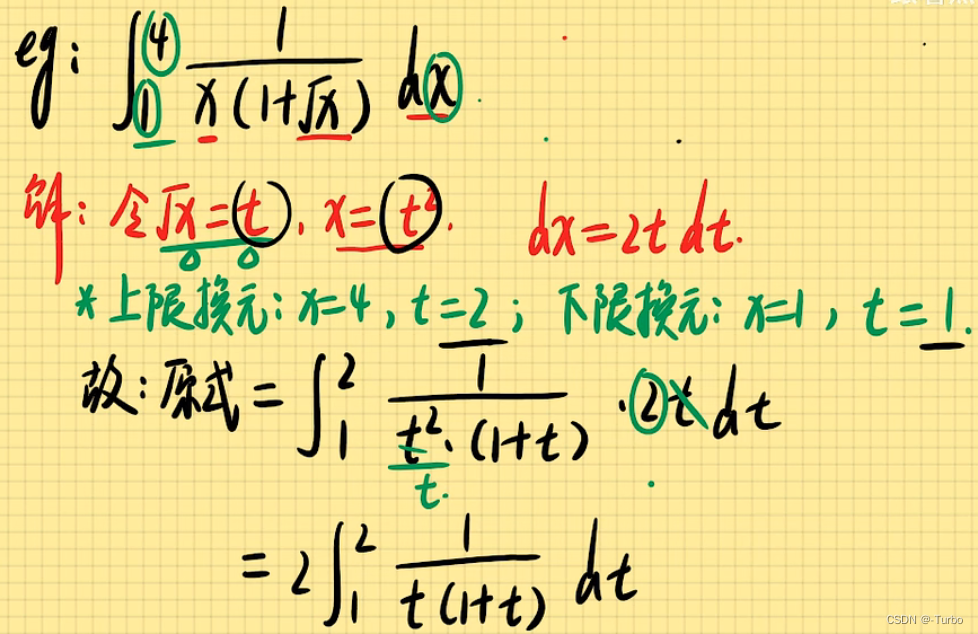 eg: ∫₁⁴ 1/(x(1+√x)) dx
解: 令√x=t, x=t². dx=2t dt.
*上限换元: x=4, t=2; 下限换元: x=1, t=1.
故: 原式=∫₁² 1/(t²·(1+t)) ·2t dt
t.
=2∫₁² 1/(t(1+t)) dt
CSDN @-Turbo